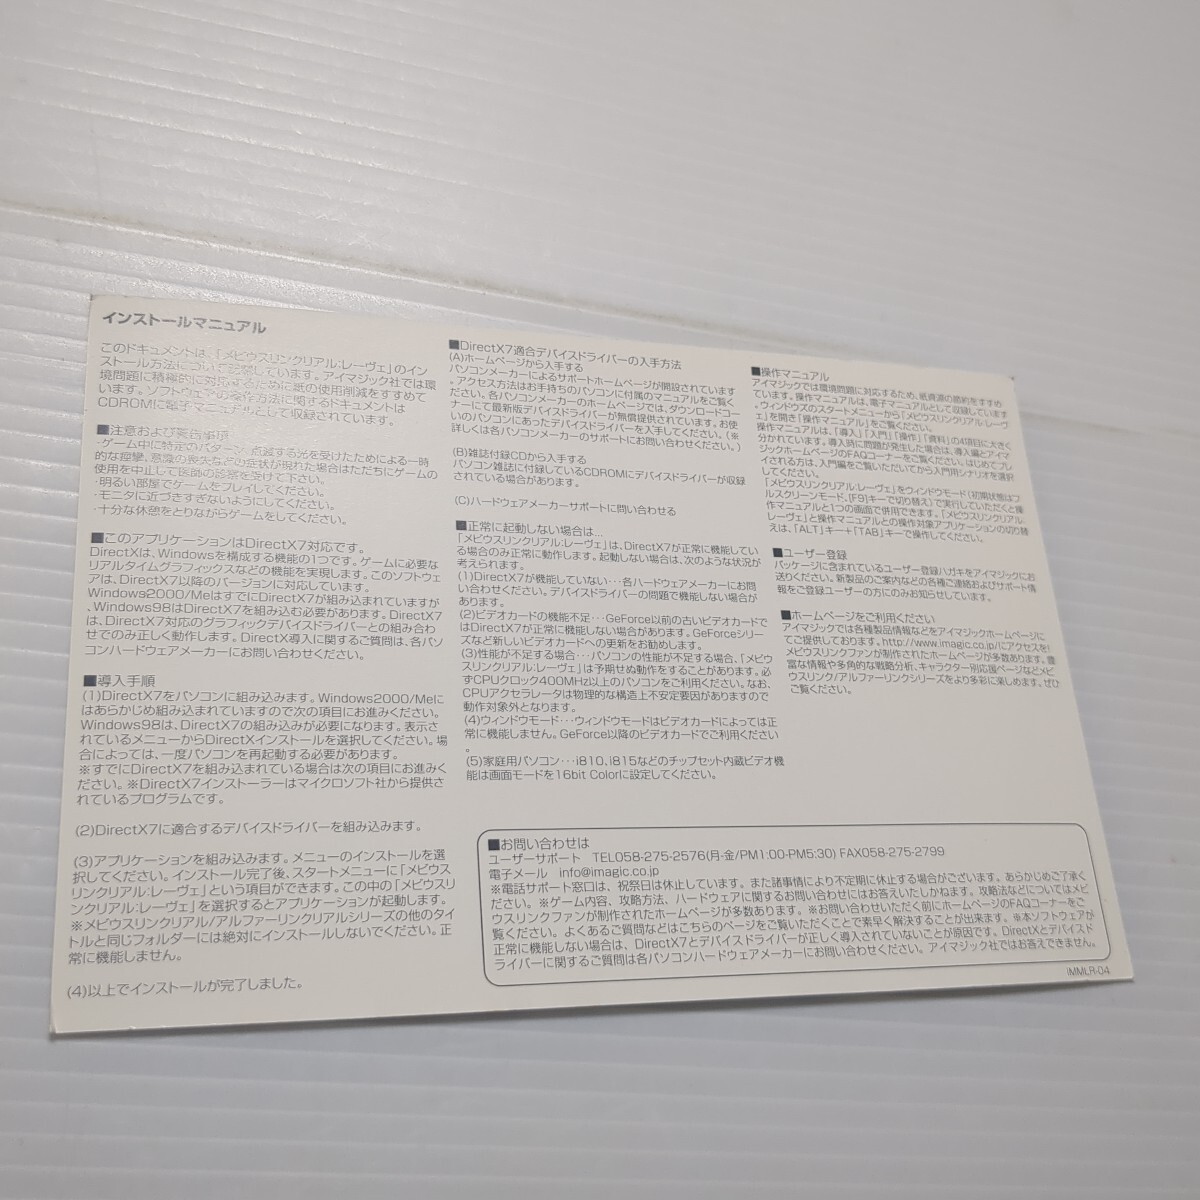 インストールマニュアル
このドキュメントは、「メビウスリンクリアル:レーヴェ」のイン
ストール方法について記載しています。アイマジック社では環
境問題に積極的に対応するために紙の使用削減をすすめて
います。ソフトウェアの操作方法に関するドキュメントは
CDROMに電子マニュアルとして収録されています。
■注意および警告事項
・ゲーム中に特定のパターン、点滅する光を受けたためによる一時
的な痙攣、意識の喪失などの症状が現れた場合はただちにゲームの
使用を中止して医師の診察を受けて下さい。
・明るい部屋でゲームをプレイしてください。
・モニタに近づきすぎないようにしてください。
・十分な休憩をとりながらゲームをしてください。
■このアプリケーションはDirectX7対応です。
DirectXは、Windowsを構成する機能の1つです。ゲームに必要な
リアルタイムグラフィックスなどの機能を実現します。このソフトウェ
アは、DirectX7以降のバージョンに対応しています。
Windows2000/MeはすでにDirectX7が組み込まれていますが
、Windows98はDirectX7を組み込む必要があります。DirectX7
は、DirectX7対応のグラフィックデバイスドライバーとの組み合わ
せでのみ正しく動作します。DirectX導入に関するご質問は、各パソ
コンハードウェアメーカーにお問い合わせください。
■導入手順
(1)DirectX7をパソコンに組み込みます。Windows2000/Meに
はあらかじめ組み込まれていますので次の項目にお進みください。
Windows98は、DirectX7の組み込みが必要になります。表示さ
れているメニューからDirectXインストールを選択してください。場
合によっては、一度パソコンを再起動する必要があります。
※すでにDirectX7を組み込まれている場合は次の項目にお進みく
ださい。※DirectX7インストーラーはマイクロソフト社から提供さ
れているプログラムです。
(2)DirectX7に適合するデバイスドライバーを組み込みます。
(3)アプリケーションを組み込みます。メニューのインストールを選
択してください。インストール完了後、スタートメニューに「メビウス
リンクリアル:レーヴェ」という項目ができます。この中の「メビウスリ
ンクリアル:レーヴェ」を選択するとアプリケーションが起動します。
※メビウスリンクリアル/アルファーリンクリアルシリーズの他のタイ
トルと同じフォルダーには絶対にインストールしないでください。正
常に機能しません。
(4)以上でインストールが完了しました。
■DirectX7適合デバイスドライバーの入手方法
(A)ホームページから入手する
パソコンメーカーによるサポートホームページが開設されています
。アクセス方法はお手持ちのパソコンに付属のマニュアルをご覧く
ださい。各パソコンメーカーのホームページでは、ダウンロードコー
ナーにて最新版デバイスドライバーが無償提供されています。お使
いのパソコンにあったデバイスドライバーを入手してください。(※
詳しくは各パソコンメーカーのサポートにお問い合わせください。)
(B)雑誌付録CDから入手する
パソコン雑誌に付録しているCDROMにデバイスドライバーが収録
されている場合があります。
(C)ハードウェアメーカーサポートに問い合わせる
■正常に起動しない場合は...
「メビウスリンクリアル:レーヴェ」は、DirectX7が正常に機能してい
る場合のみ正常に動作します。起動しない場合は、次のような状況が
考えられます。
(1)DirectX7が機能していない・・・各ハードウェアメーカーにお問
い合わせください。デバイスドライバーの問題で機能しない場合が
あります。
(2)ビデオカードの機能不足・・・GeForce以前の古いビデオカードで
はDirectX7が正常に機能しない場合があります。GeForceシリー
ズなど新しいビデオカードへの更新をお勧めします。
(3)性能が不足する場合・・・パソコンの性能が不足する場合、「メビウ
スリンクリアル:レーヴェ」は予期せぬ動作をすることがあります。必
ずCPUクロック400MHz以上のパソコンをご利用ください。なお、
CPUアクセラレータは物理的な構造上不安定要因がありますので
動作対象外となります。
(4)ウィンドウモード・・・ウィンドウモードはビデオカードによっては正
常に機能しません。GeForce以降のビデオカードでご利用ください
。
(5)家庭用パソコン・・・i810、i815などのチップセット内蔵ビデオ機
能は画面モードを16bit Colorに設定してください。
■操作マニュアル
アイマジックでは環境問題に対応するため、紙資源の節約をすすめ
ています。操作マニュアルは、電子マニュアルとして収録しています
。ウィンドウズのスタートメニューから「メビウスリンクリアル:レーヴ
ェ」を開き「操作マニュアル」をご覧ください。
操作マニュアルは、「導入」「入門」「操作」「資料」の4項目に大きく
分かれています。導入時に問題が発生した場合は、導入編とアイマ
ジックホームページのFAQコーナーをご覧ください。はじめてプレ
イされる方は、入門編をご覧いただいてから入門用シナリオを選択
してください。
「メビウスリンクリアル:レーヴェ」をウィンドウモード(初期状態はフ
ルスクリーンモード、[F9]キーで切り替え)で実行していただくと操
作マニュアルと1つの画面で併用できます。「メビウスリンクリアル:
レーヴェ」と操作マニュアルとの操作対象アプリケーションの切り替
えは、「ALT」キー+「TAB」キーで操作してください。
■ユーザー登録
パッケージに含まれているユーザー登録ハガキをアイマジックにお
送りください。新製品のご案内などの各種ご連絡およびサポート情
報をご登録ユーザーの方にのみお知らせしています。
■ホームページをご利用ください
アイマジックでは各種製品情報などをアイマジックホームページに
てご提供しております。http://www.imagic.co.jp/にアクセスを!
メビウスリンクファンが制作されたホームページが多数あります。豊
富な情報や多角的な戦略分析、キャラクター別応援ページなどメビ
ウスリンク/アルファーリンクシリーズをより多彩に楽しめます。ぜひ
ご覧ください。
■お問い合わせは
ユーザーサポート TEL058-275-2576(月-金/PM1:00-PM5:30) FAX058-275-2799
電子メール info@imagic.co.jp
※電話サポート窓口は、祝祭日は休止しています。また諸事情により不定期に休止する場合がございます。あらかじめご了承く
ださい。※ゲーム内容、攻略方法、ハードウェアに関するお問い合わせにはお答えいたしかねます。攻略法などについてはメビ
ウスリンクファンが制作されたホームページが多数あります。※お問い合わせいただく前にホームページのFAQコーナーをご
覧ください。よくあるご質問などはこちらのページをご覧いただくことで素早く解決することが出来ます。※本ソフトウェアが
正常に機能しない場合は、DirectX7とデバイスドライバーが正しく導入されていないことが原因です。DirectXとデバイスド
ライバーに関するご質問は各パソコンハードウェアメーカーにお問い合わせください。アイマジック社ではお答えできません。
iMMLR-04